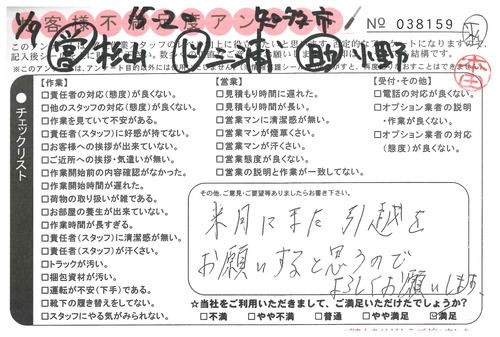 お客様不満足度アンケート
No 038159
●チェックリスト
【作業】
□責任者の対応(態度)が良くない。
□他のスタッフの対応(態度)が良くない。
□作業を見ていて不安がある。
□責任者(スタッフ)に好感が持てない。
□お客様への挨拶が出来ていない。
□ご近所への挨拶・気遣いが無い。
□作業開始前の内容確認がなかった。
□作業開始時間が遅れた。
□荷物の取り扱いが雑である。
□お部屋の養生が出来ていない。
□作業時間が長すぎる。
□責任者(スタッフ)に清潔感が無い。
□責任者(スタッフ)が汗くさい。
□トラックが汚い。
□梱包資材が汚い。
□運転が不安(下手)である。
□靴下の履き替えをしてない。
□スタッフにやる気がみられない。
【営業】
□見積もり時間に遅れた。
□見積もり時間が長い。
□営業マンに清潔感が無い。
□営業マンが煙草くさい。
□営業マンが汗くさい。
□営業態度が良くない。
□営業の説明と作業が一致してない。
【受付・その他】
□電話の対応が良くない。
□オプション業者の説明
・作業が良くない。
□オプション業者の対応
(態度)が良くない。
その他、ご意見・ご要望等ありましたらお書き下さい。
来月にまた引越を
お願いすると思うので
よろしくお願いします。
☆当社をご利用いただきまして、ご満足いただけたでしょうか?
□不満 □やや不満 □普通 □やや満足 ☑満足